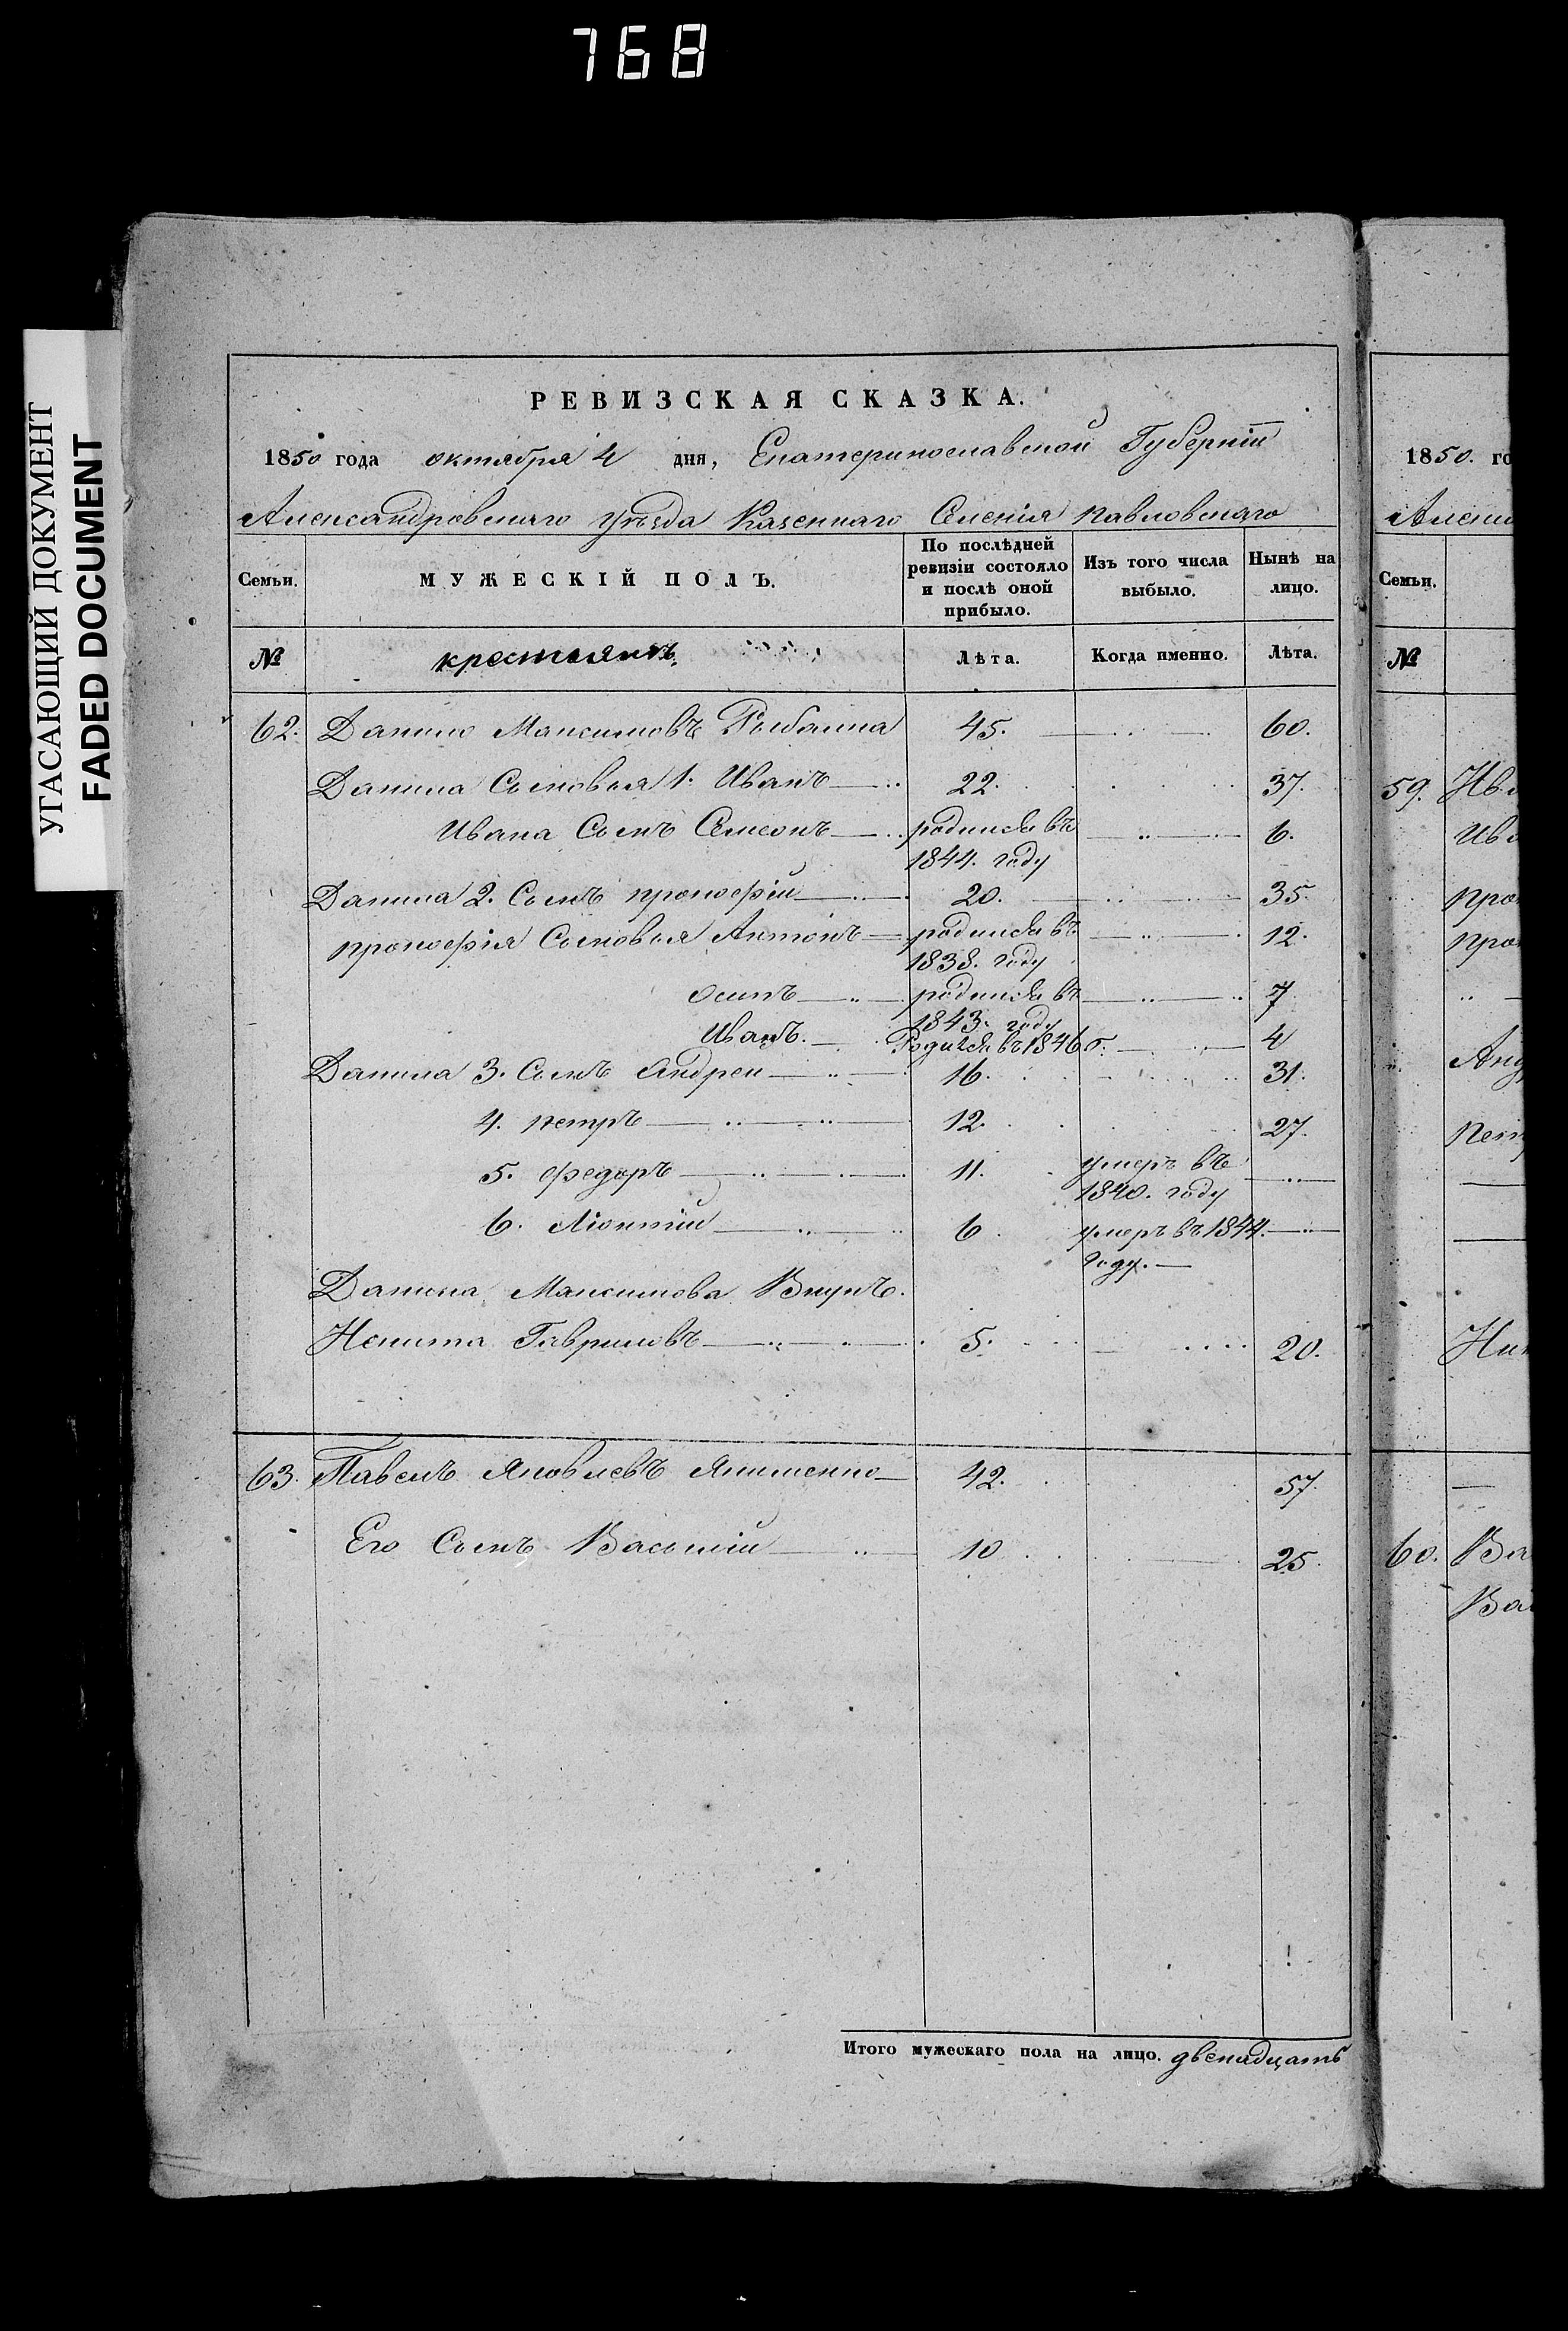 768
УГАСАЮЩИЙ ДОКУМЕНТ
FADED DOCUMENT
РЕВИЗСКАЯ СКАЗКА.
1850 года октября 4 дня, Екатеринославской Губерніи
Александровскаго уѣзда Казеннаго Селенія павловскаго
Семьи. МУЖЕСКІЙ ПОЛЪ. По послѣдней ревизіи состояло и послѣ оной прибыло. Изъ того числа выбыло. Нынѣ на лицо.
№ крестьянъ Лѣта. Когда именно. Лѣта.
62. Данило Максимовъ Рыбалка 45. 60.
Данила Сыновья 1. Иванъ 22. 37.
Ивана Сынъ Семеонъ родился въ 6.
1844. году
Данила 2. Сынъ прокофій 20. 35.
прокофія Сыновья Антонъ родился въ 12.
1838. году
осипъ родился въ 7
1843. году
Иванъ. Родился въ 1846 г. 4
Данила 3. Сынъ Андреи 16. 31.
4. петръ 12. 27.
5. федоръ 11. умеръ въ
1840. году
6. Ліонтій 6 умеръ въ 1844.
году.
Данила Максимова Внукъ.
Некита Гавриловъ 5. 20.
63. Павелъ Яковлевъ Якименко 42. 57.
Его Сынъ Василій 10 25.
Итого мужескаго пола на лицо. двенадцать
1850. го
Алекс
Семьи.
№
59. Ив
Ива
про
про
Анд
пет
Ник
60. Ва
Ва